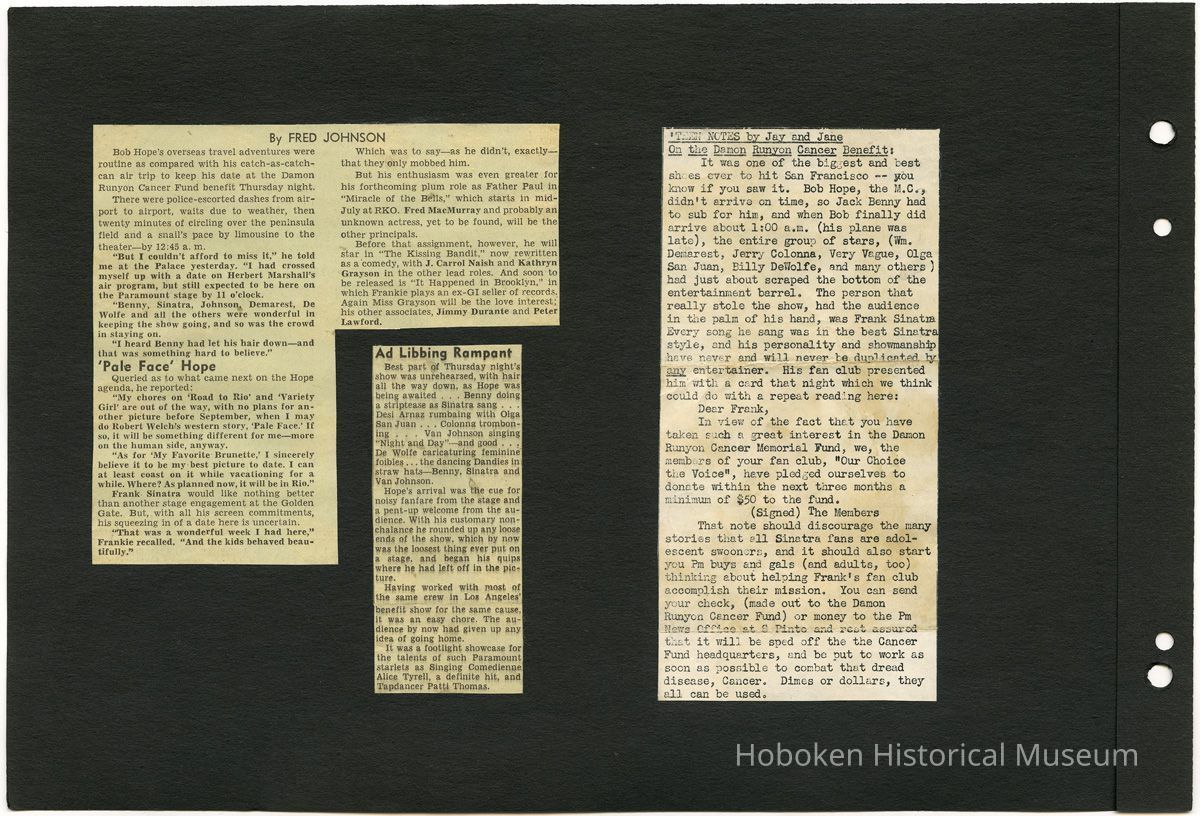 By FRED JOHNSON
Bob Hope's overseas travel adventures were
routine as compared with his catch-as-catch-
can air trip to keep his date at the Damon
Runyon Cancer Fund benefit Thursday night.
There were police-escorted dashes from air-
port to airport, waits due to weather, then
twenty minutes of circling over the peninsula
field and a snail's pace by limousine to the
theater—by 12:45 a. m.
"But I couldn't afford to miss it," he told
me at the Palace yesterday. "I had crossed
myself up with a date on Herbert Marshall's
air program, but still expected to be here on
the Paramount stage by 11 o'clock.
"Benny, Sinatra, Johnson, Demarest, De
Wolfe and all the others were wonderful in
keeping the show going, and so was the crowd
in staying on.
"I heard Benny had let his hair down—and
that was something hard to believe."
'Pale Face' Hope
Queried as to what came next on the Hope
agenda, he reported:
"My chores on 'Road to Rio' and 'Variety
Girl' are out of the way, with no plans for an-
other picture before September, when I may
do Robert Welch's western story, 'Pale Face.' If
so, it will be something different for me—more
on the human side, anyway.
"As for 'My Favorite Brunette,' I sincerely
believe it to be my best picture to date. I can
at least coast on it while vacationing for a
while. Where? As planned now, it will be in Rio."
Frank Sinatra would like nothing better
than another stage engagement at the Golden
Gate. But, with all his screen commitments,
his squeezing in of a date here is uncertain.
"That was a wonderful week I had here,"
Frankie recalled. "And the kids behaved beau-
tifully."
Which was to say—as he didn't, exactly—
that they only mobbed him.
But his enthusiasm was even greater for
his forthcoming plum role as Father Paul in
"Miracle of the Bells," which starts in mid-
July at RKO. Fred MacMurray and probably an
unknown actress, yet to be found, will be the
other principals.
Before that assignment, however, he will
star in "The Kissing Bandit," now rewritten
as a comedy, with J. Carrol Naish and Kathryn
Grayson in the other lead roles. And soon to
be released is "It Happened in Brooklyn," in
which Frankie plays an ex-GI seller of records.
Again Miss Grayson will be the love interest;
his other associates, Jimmy Durante and Peter
Lawford.
Ad Libbing Rampant
Best part of Thursday night's
show was unrehearsed, with hair
all the way down, as Hope was
being awaited . . . Benny doing
a striptease as Sinatra sang . . .
Desi Arnaz rumbaing with Olga
San Juan . . . Colonna trombon-
ing . . . Van Johnson singing
"Night and Day"—and good . . .
De Wolfe caricaturing feminine
foibles . . . the dancing Dandies in
straw hats—Benny, Sinatra and
Van Johnson.
Hope's arrival was the cue for
noisy fanfare from the stage and
a pent-up welcome from the au-
dience. With his customary non-
chalance he rounded up any loose
ends of the show, which by now
was the loosest thing ever put on
a stage, and began his quips
where he had left off in the pic-
ture.
Having worked with most of
the same crew in Los Angeles'
benefit show for the same cause,
it was an easy chore. The au-
dience by now had given up any
idea of going home.
It was a footlight showcase for
the talents of such Paramount
starlets as Singing Comedienne
Alice Tyrell, a definite hit, and
Tapdancer Patti Thomas.
'TEEN NOTES by Jay and Jane
On the Damon Runyon Cancer Benefit:
It was one of the biggest and best
shoes ever to hit San Francisco -- you
know if you saw it. Bob Hope, the M.C.,
didn't arrive on time, so Jack Benny had
to sub for him, and when Bob finally did
arrive about 1:00 a.m. (his plane was
late), the entire group of stars, (Wm.
Demarest, Jerry Colonna, Very Vague, Olga
San Juan, Billy DeWolfe, and many others)
had just about scraped the bottom of the
entertainment barrel. The person that
really stole the show, had the audience
in the palm of his hand, was Frank Sinatra
Every song he sang was in the best Sinatra
style, and his personality and showmanship
have never and will never be duplicated by
any entertainer. His fan club presented
him with a card that night which we think
could do with a repeat reading here:
Dear Frank,
In view of the fact that you have
taken such a great interest in the Damon
Runyon Cancer Memorial Fund, we, the
members of your fan club, "Our Choice
the Voice", have pledged ourselves to
donate within the next three months a
minimum of $50 to the fund.
(Signed) The Members
That note should discourage the many
stories that all Sinatra fans are adol-
escent swooners, and it should also start
you Pm buys and gals (and adults, too)
thinking about helping Frank's fan club
accomplish their mission. You can send
your check, (made out to the Damon
Runyon Cancer Fund) or money to the Pm
News Office at 8 Pinto and rest assured
that it will be sped off the the Cancer
Fund headquarters, and be put to work as
soon as possible to combat that dread
disease, Cancer. Dimes or dollars, they
all can be used.
Hoboken Historical Museum